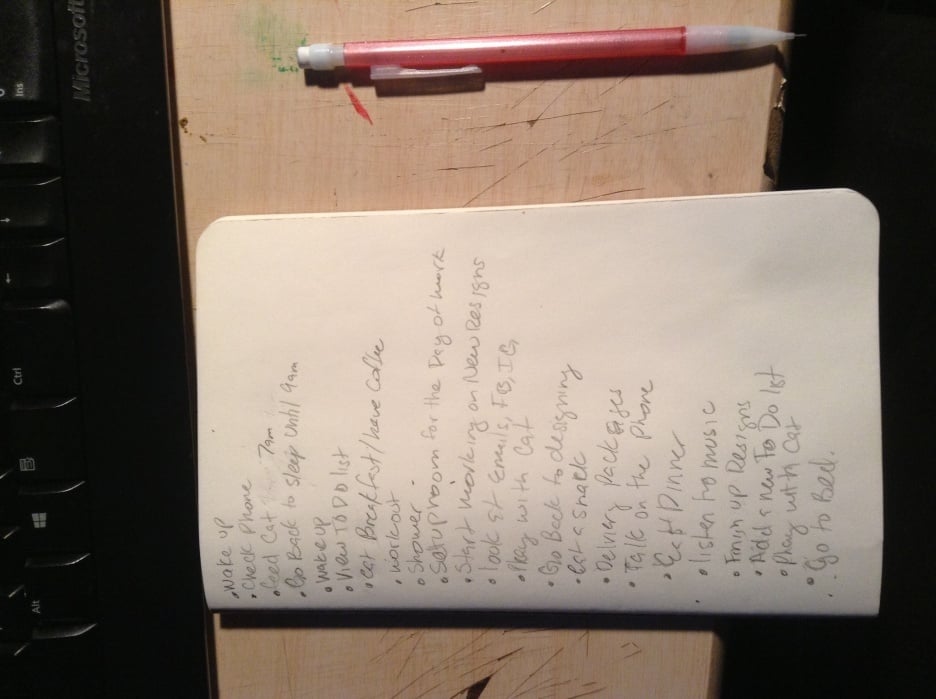 Microsoft
Ins
Ctrl
Alt
• wake up
• Check Phone
• feed Cat 7am
• Go Back to sleep until 9am
• wake up
• View TO DO list
• eat Breakfast/have Coffee
• workout
• Shower
• Set up room for the Day of work
• Start working on New Designs
• Look at Emails, FB, IG,
• Play with Cat
• Go Back to designing
• eat a snack
• Delivery Packages
• Talk on the Phone
• Eat Dinner
• listen to music
• Finish up Designs
• Add a new To Do list
• Play with Cat
• Go to Bed.